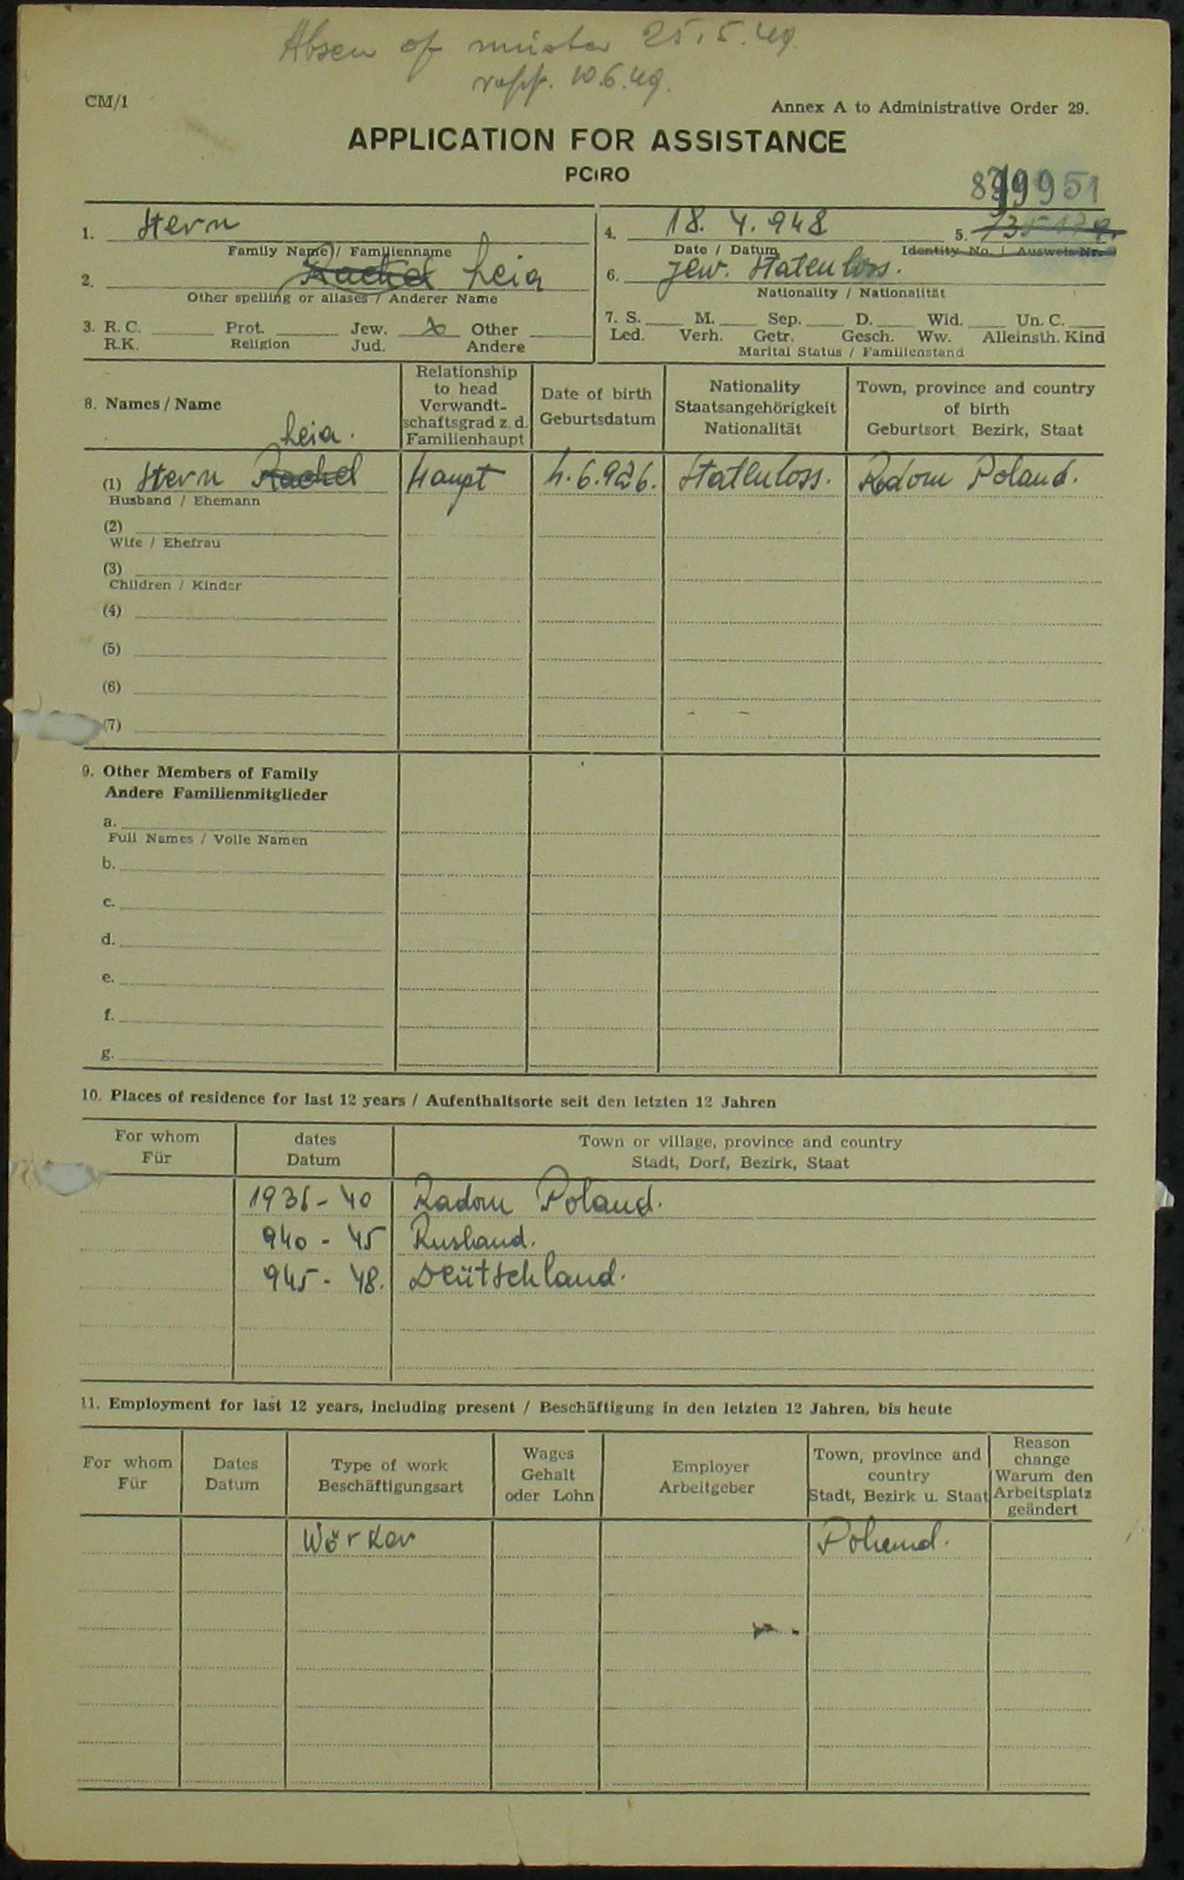 Absen of muster 25.5.49.
rapp. 10.6.49.
CM/1
Annex A to Administrative Order 29.
APPLICATION FOR ASSISTANCE
PCIRO
1. Stern
Family Name / Familienname
2. Rachel Leia
Other spelling or aliases / Anderer Name
3. R. C. Prot. Jew. x Other
R.K. Religion Jud. Andere
4. 18. 4. 948 5.
Date / Datum Identity No. / Ausweis Nr.
6. Jew. Statenloss.
Nationality / Nationalität
7. S. M. Sep. D. Wid. Un. C.
Led. Verh. Getr. Gesch. Ww. Alleinsth. Kind
Marital Status / Familienstand
8. Names / Name
Relationship
to head
Verwandt-
schaftsgrad z. d.
Familienhaupt
Date of birth
Geburtsdatum
Nationality
Staatsangehörigkeit
Nationalität
Town, province and country
of birth
Geburtsort Bezirk, Staat
Leia.
(1) Stern Rachel Haupt 4.6.926. Statenloss. Radom Poland.
Husband / Ehemann
(2)
Wife / Ehefrau
(3)
Children / Kinder
(4)
(5)
(6)
(7)
9. Other Members of Family
Andere Familienmitglieder
a.
Full Names / Volle Namen
b.
c.
d.
e.
f.
g.
10. Places of residence for last 12 years / Aufenthaltsorte seit den letzten 12 Jahren
For whom
Für
dates
Datum
Town or village, province and country
Stadt, Dorf, Bezirk, Staat
1936 - 40 Radom Poland.
940 - 45 Rusland.
945 - 48. Deütschland.
11. Employment for last 12 years, including present / Beschäftigung in den letzten 12 Jahren, bis heute
For whom
Für
Dates
Datum
Type of work
Beschäftigungsart
Wages
Gehalt
oder Lohn
Employer
Arbeitgeber
Town, province and
country
Stadt, Bezirk u. Staat
Reason
change
Warum den
Arbeitsplatz
geändert
Wörker Poland.